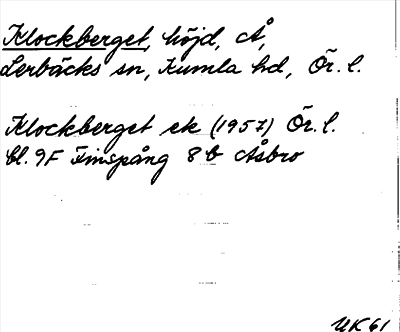 Klockberget, höjd, Å,
Lerbäcks sn, Kumla hd, Ör. l.
Klockberget ek (1957) Ör. l.
bl. 9F Finspång 8 b Åsbro
UK 61